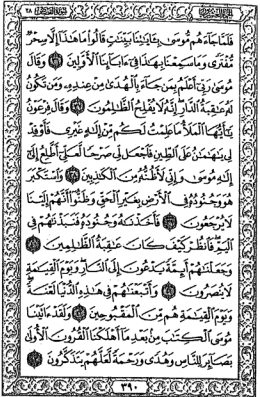 فَلَمَّا جَآءَهُم مُّوسَىٰ بِـَٔايَٰتِنَا بَيِّنَٰتٍ قَالُوا۟ مَا هَٰذَآ إِلَّا سِحْرٌ
مُّفْتَرًى وَمَا سَمِعْنَا بِهَٰذَا فِىٓ ءَابَآئِنَا ٱلْأَوَّلِينَ ۝ وَقَالَ
مُوسَىٰ رَبِّىٓ أَعْلَمُ بِمَن جَآءَ بِٱلْهُدَىٰ مِنْ عِندِهِۦ وَمَن تَكُونُ
لَهُۥ عَٰقِبَةُ ٱلدَّارِ إِنَّهُۥ لَا يُفْلِحُ ٱلظَّٰلِمُونَ ۝ وَقَالَ فِرْعَوْنُ
يَٰٓأَيُّهَا ٱلْمَلَأُ مَا عَلِمْتُ لَكُم مِّنْ إِلَٰهٍ غَيْرِى فَأَوْقِدْ
لِى يَٰهَٰمَٰنُ عَلَى ٱلطِّينِ فَٱجْعَل لِّى صَرْحًا لَّعَلِّىٓ أَطَّلِعُ إِلَىٰٓ
إِلَٰهِ مُوسَىٰ وَإِنِّى لَأَظُنُّهُۥ مِنَ ٱلْكَٰذِبِينَ ۝ وَٱسْتَكْبَرَ
هُوَ وَجُنُودُهُۥ فِى ٱلْأَرْضِ بِغَيْرِ ٱلْحَقِّ وَظَنُّوٓا۟ أَنَّهُمْ إِلَيْنَا
لَا يُرْجَعُونَ ۝ فَأَخَذْنَٰهُ وَجُنُودَهُۥ فَنَبَذْنَٰهُمْ فِى
ٱلْيَمِّ فَٱنظُرْ كَيْفَ كَانَ عَٰقِبَةُ ٱلظَّٰلِمِينَ ۝
وَجَعَلْنَٰهُمْ أَئِمَّةً يَدْعُونَ إِلَى ٱلنَّارِ وَيَوْمَ ٱلْقِيَٰمَةِ
لَا يُنصَرُونَ ۝ وَأَتْبَعْنَٰهُمْ فِى هَٰذِهِ ٱلدُّنْيَا لَعْنَةً
وَيَوْمَ ٱلْقِيَٰمَةِ هُم مِّنَ ٱلْمَقْبُوحِينَ ۝ وَلَقَدْ ءَاتَيْنَا
مُوسَى ٱلْكِتَٰبَ مِنۢ بَعْدِ مَآ أَهْلَكْنَا ٱلْقُرُونَ ٱلْأُولَىٰ
بَصَآئِرَ لِلنَّاسِ وَهُدًى وَرَحْمَةً لَّعَلَّهُمْ يَتَذَكَّرُونَ ۝
٣٩٠